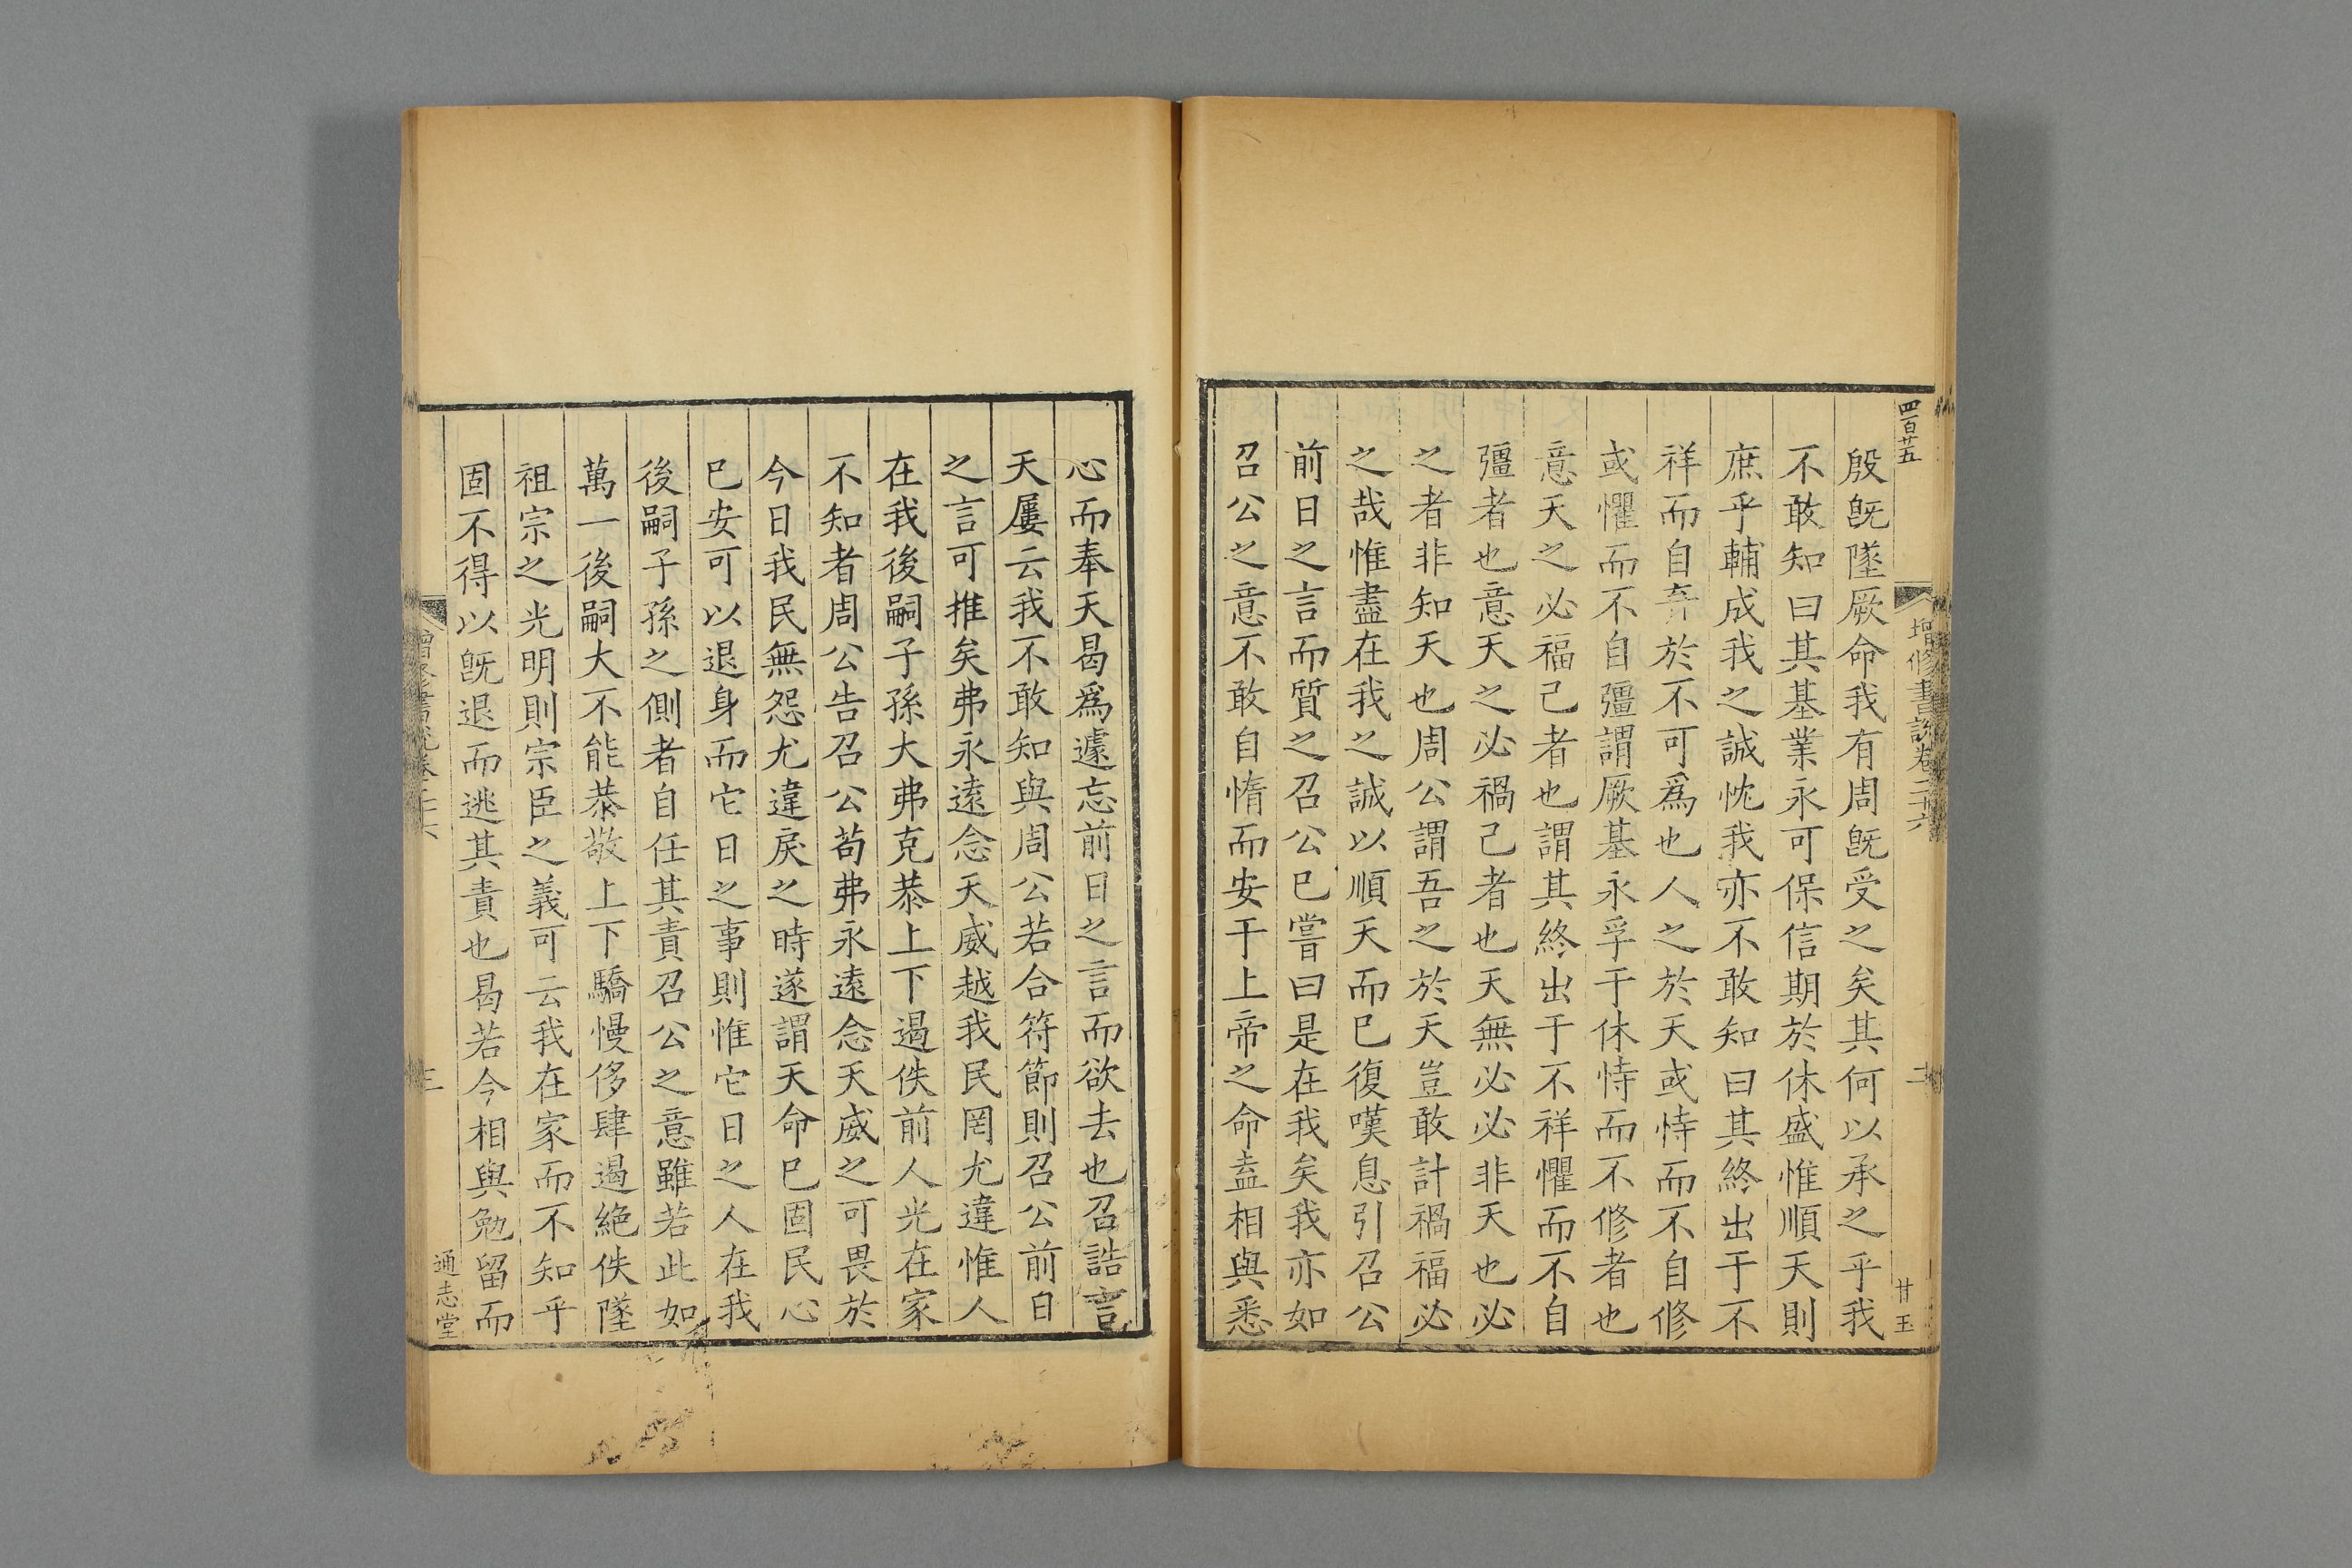 四百廿五
增修書說卷二十六
二
廿玉
殷旣墜厥命我有周旣受之矣其何以承之乎我
不敢知曰其基業永可保信期於休盛惟順天則
庶乎輔成我之誠忱我亦不敢知曰其終出于不
祥而自弃於不可爲也人之於天或恃而不自修
或懼而不自彊謂厥基永孚于休恃而不修者也
意天之必福己者也謂其終出于不祥懼而不自
彊者也意天之必禍己者也天無必必非天也必
之者非知天也周公謂吾之於天豈敢計禍福必
之哉惟盡在我之誠以順天而已復嘆息引召公
前日之言而質之召公已嘗曰是在我矣我亦如
召公之意不敢自惰而安于上帝之命盍相與悉
心而奉天曷爲遽忘前日之言而欲去也召誥言
天屢云我不敢知與周公若合符節則召公前日
之言可推矣弗永遠念天威越我民罔尤違惟人
在我後嗣子孫大弗克恭上下遏佚前人光在家
不知者周公告召公苟弗永遠念天威之可畏於
今日我民無怨尤違戾之時遂謂天命已固民心
已安可以退身而它日之事則惟它日之人在我
後嗣子孫之側者自任其責召公之意雖若此如
萬一後嗣大不能恭敬上下驕慢侈肆遏絶佚墜
祖宗之光明則宗臣之義可云我在家而不知乎
固不得以旣退而逃其責也曷若今相與勉留而
三
通志堂